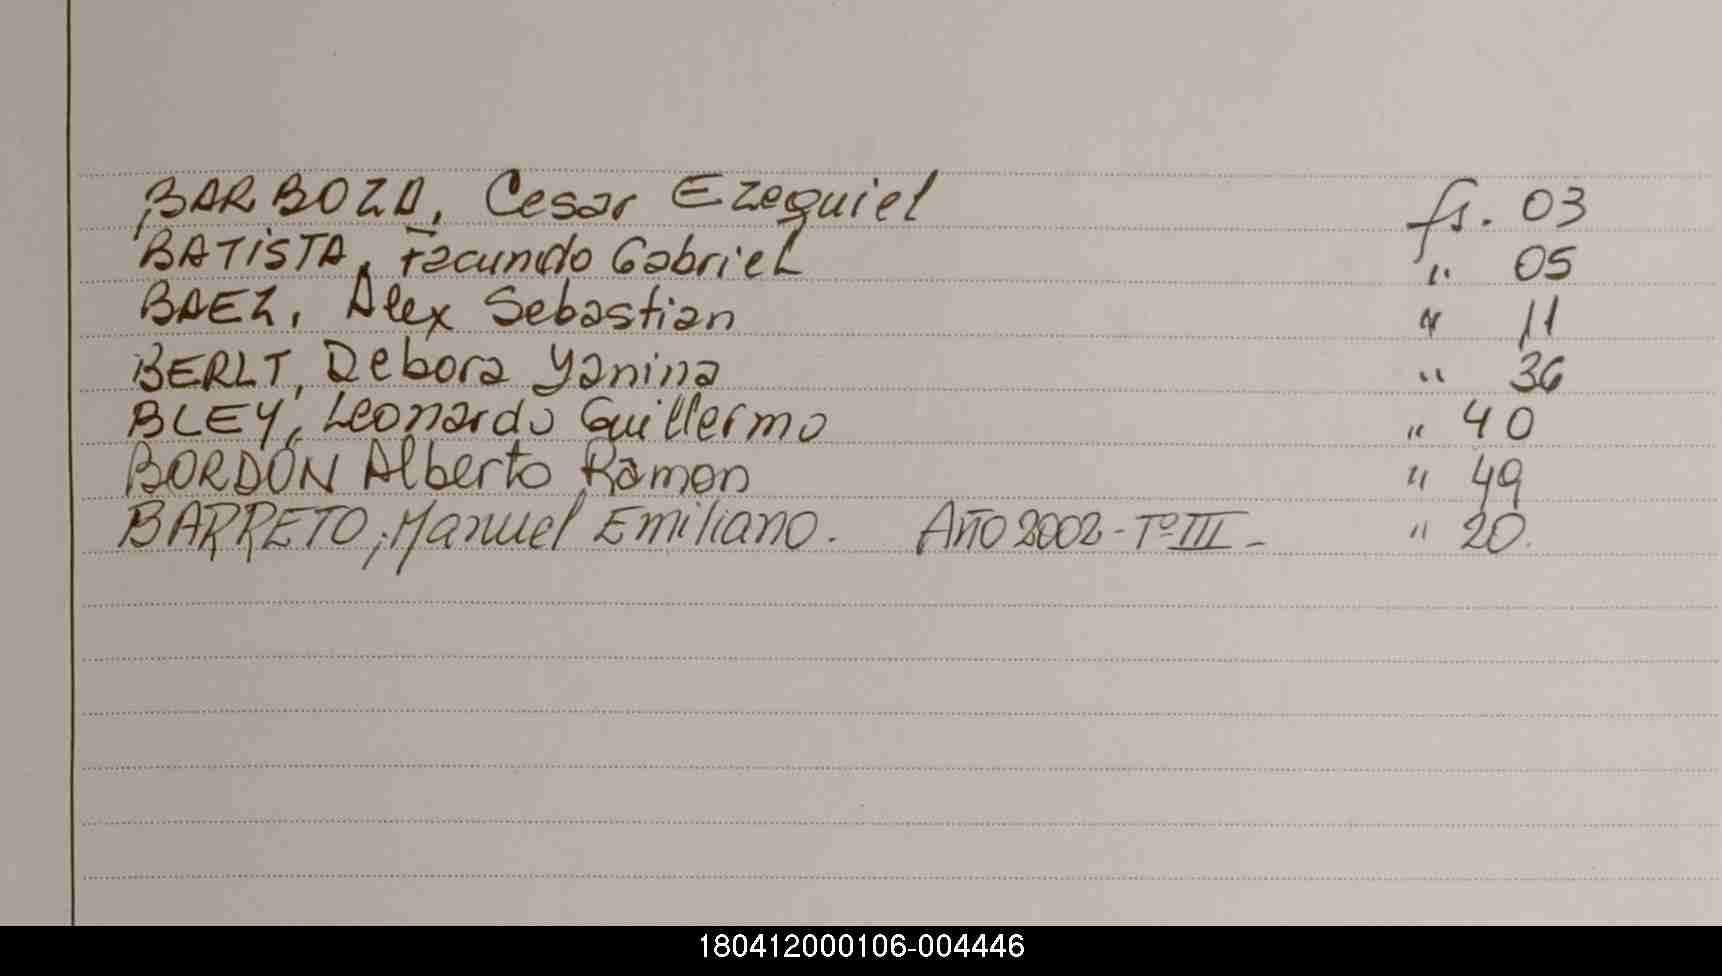 BARBOZA, Cesar Ezequiel fs. 03
BATISTA, Facundo Gabriel " 05
BAEZ, Alex Sebastian " 11
BERLT, Debora Yanina " 36
BLEY, Leonardo Guillermo " 40
BORDÓN Alberto Ramon " 49
BARRETO, Manuel Emiliano. AÑO 2002 - Tº III - " 20.
180412000106-004446